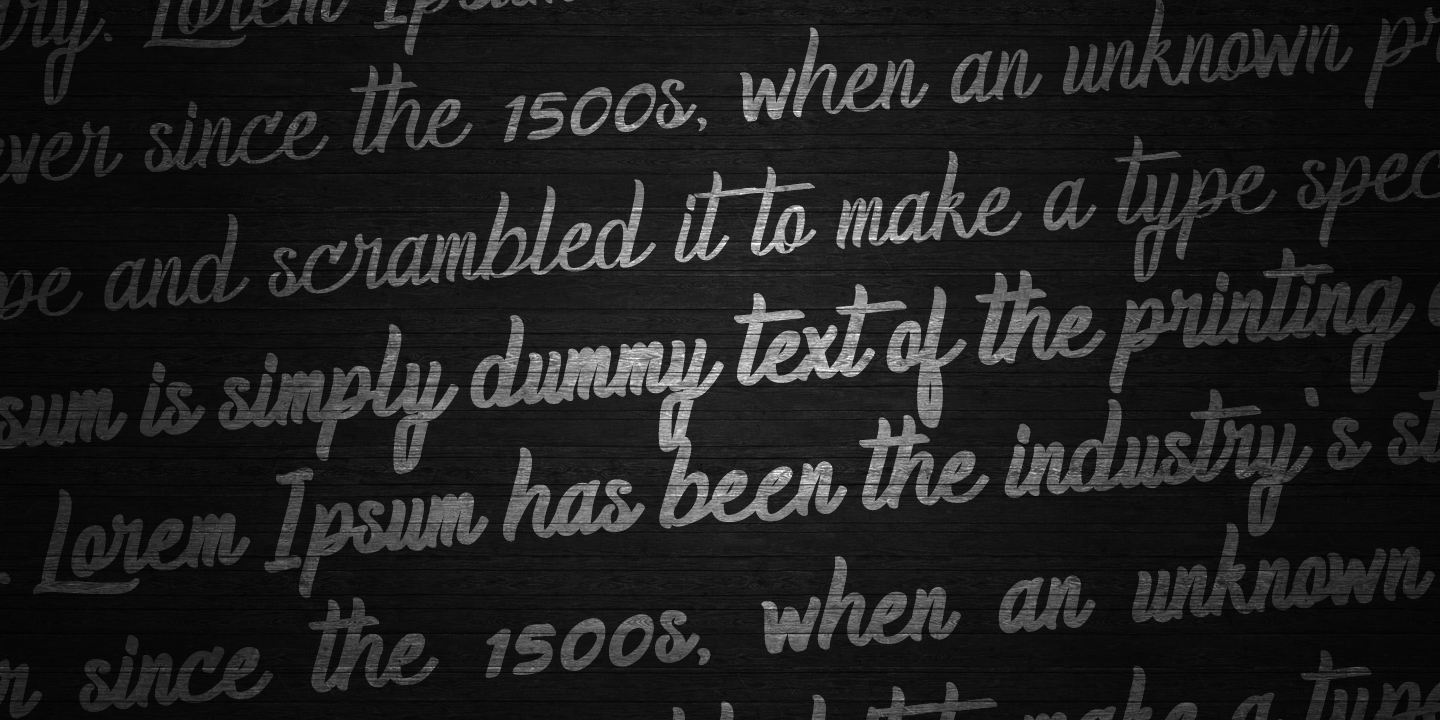 ry. Lorem Ipsum
ever since the 1500s, when an unknown pr
pe and scrambled it to make a type spec
sum is simply dummy text of the printing
. Lorem Ipsum has been the industry's st
r since the 1500s, when an unknown
it to make a type